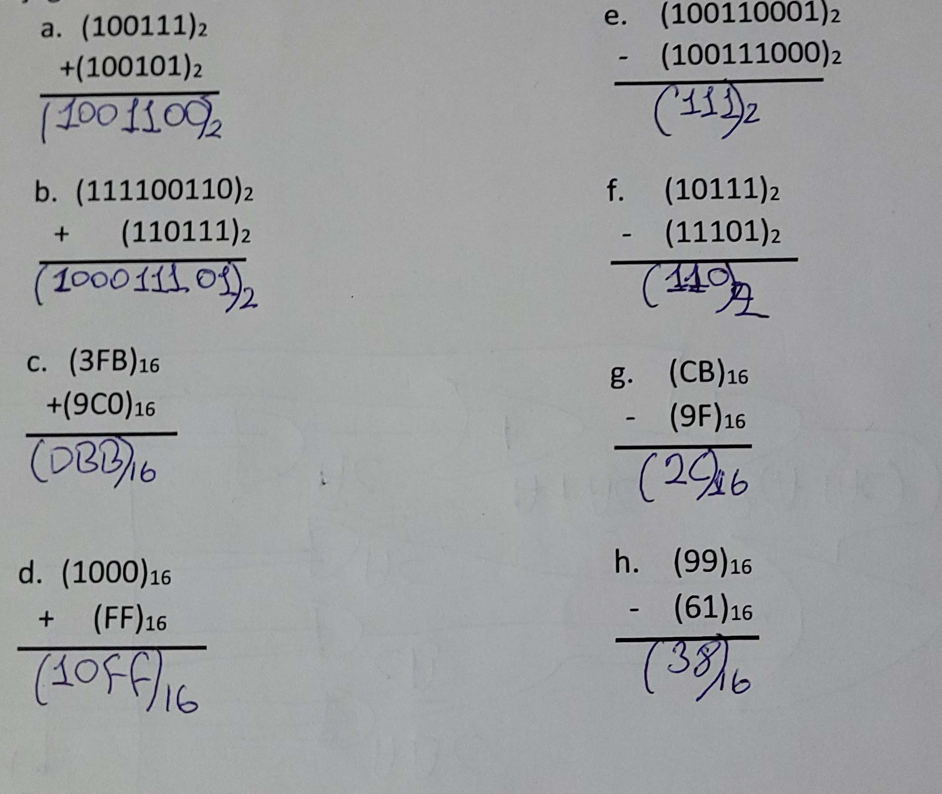 a. (100111)2
+(100101)2
(1001100)2
b. (111100110)2
+ (110111)2
(100011101)2
c. (3FB)16
+(9C0)16
(DBB)16
d. (1000)16
+ (FF)16
(10FF)16
e. (100110001)2
- (100111000)2
(111)2
f. (10111)2
- (11101)2
(110)2
g. (CB)16
- (9F)16
(2C)16
h. (99)16
- (61)16
(38)16